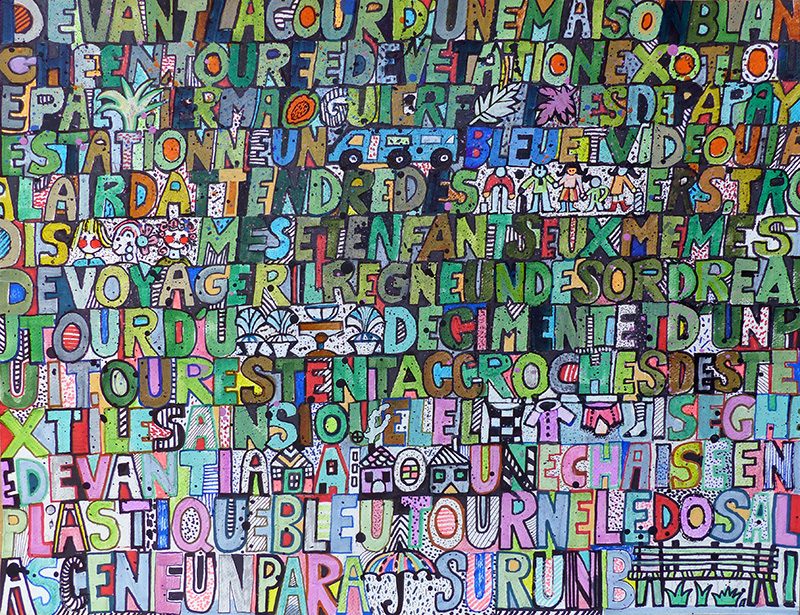 DEVANTLACOURDUNEMAISONBLAN
CHEENTOUREEDEVEGETATIONEXOTIQU
EPA IERMA GUIERF ESDEPAPAY
ESTATIONNEUN BLEUETVIDEQUIA
LAIRDATTENDREDES ERS,TRO
DIS MESETENFANTSEUXMEMES
DEVOYAGERILREGNEUNDESORDREA
UTOURDU DECIMENTETDUNP
ULTOURESTENTACCROCHESDESTE
XTILESAINSIQUELEL ISEGHE
EDEVANTLA A O UNECHAISEEN
PLASTIQUEBLEUTOURNELEDOSAL
ASCENEUNPARA SURUNB